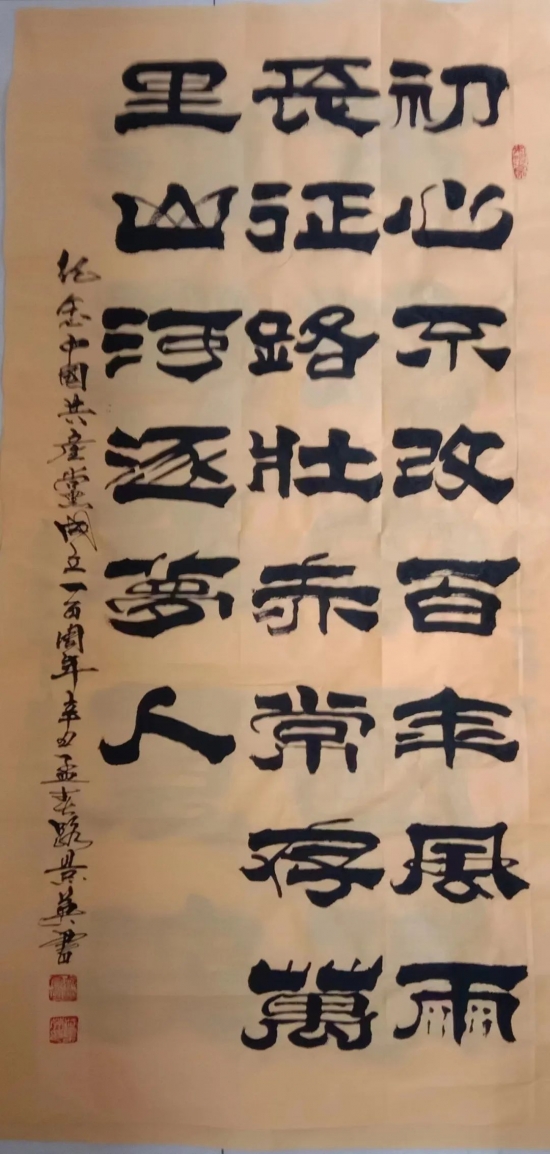 初心不改百年風雨
長征路壯志常存萬
里山河逐夢人
纪念中國共產黨成立一百周年 辛丑孟春路景英書